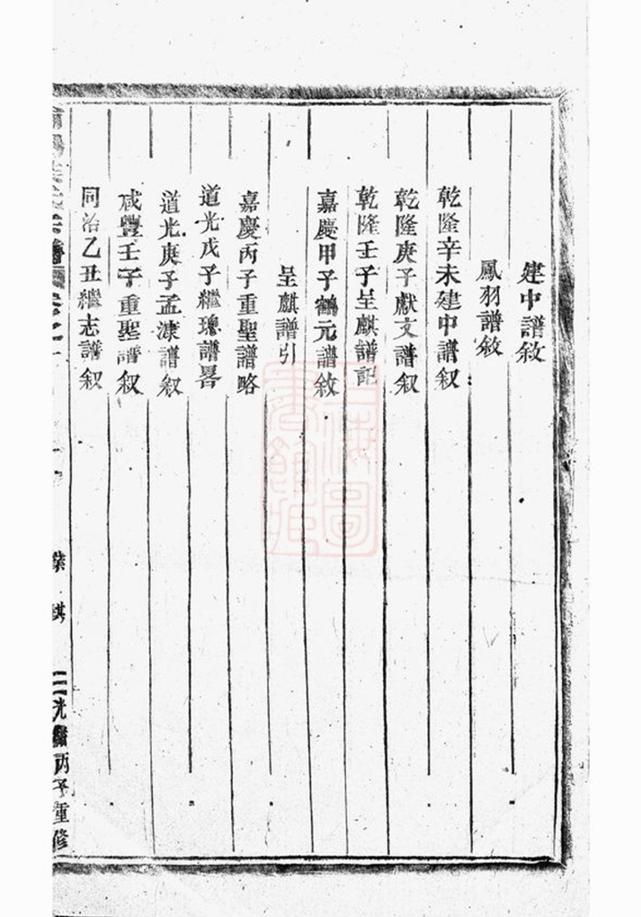 建中譜敘
鳳羽譜敘
乾隆辛未建中譜叙
乾隆庚子獻文譜叙
乾隆壬子呈麒譜記
嘉慶甲子鶴元譜敘
呈麒譜引
嘉慶丙子重聖譜略
道光戊子繼璁譜畧
道光庚子孟溁譜叙
咸豐壬子重聖譜叙
同治乙丑繼志譜叙
宗譜
卷之一
二
光緒丙子重修
上海圖書館藏